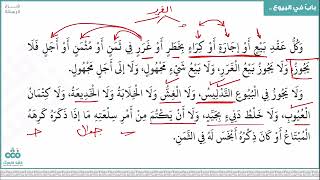 باب في البيوع ..
الغرر
وَكُلُّ عَقْدِ بَيْعٍ أَوْ إِجَارَةٍ أَوْ كِرَاءٍ بِخَطَرٍ أَوْ غَرَرٍ فِي ثَمَنٍ أَوْ مُثْمَنٍ أَوْ أَجَلٍ فَلَا
يَجُوزُ، وَلَا يَجُوزُ بَيْعُ الْغَرَرِ، وَلَا بَيْعُ شَيْءٍ مَجْهُولٍ، وَلَا إِلَى أَجَلٍ مَجْهُولٍ.
وَلَا يَجُوزُ فِي الْبُيُوعِ التَّدْلِيسُ، وَلَا الْغِشُّ، وَلَا الْخِلَابَةُ، وَلَا الْخَدِيعَةُ، وَلَا كِتْمَانُ
الْعُيُوبِ، وَلَا خَلْطُ دَنِيءٍ بِجَيِّدٍ، وَلَا أَنْ يَكْتُمَ مِنْ أَمْرِ سِلْعَتِهِ مَا إِذَا ذَكَرَهُ كَرِهَهُ
الْمُبْتَاعُ أَوْ كَانَ ذِكْرُهُ أَبْخَسَ لَهُ فِي الثَّمَنِ.